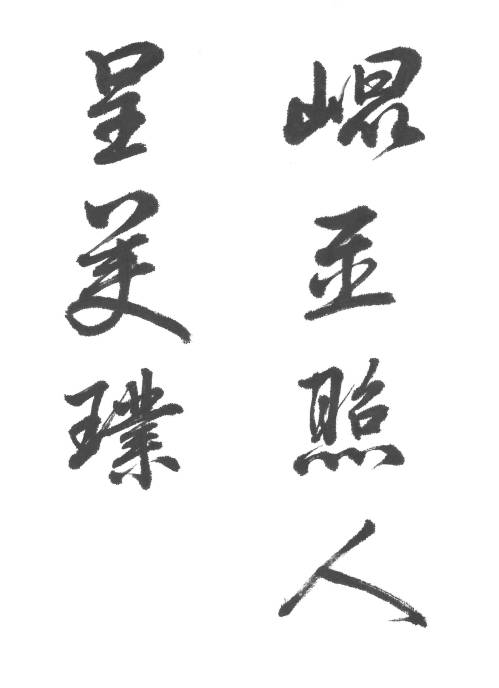 崐玉照人
呈美璞